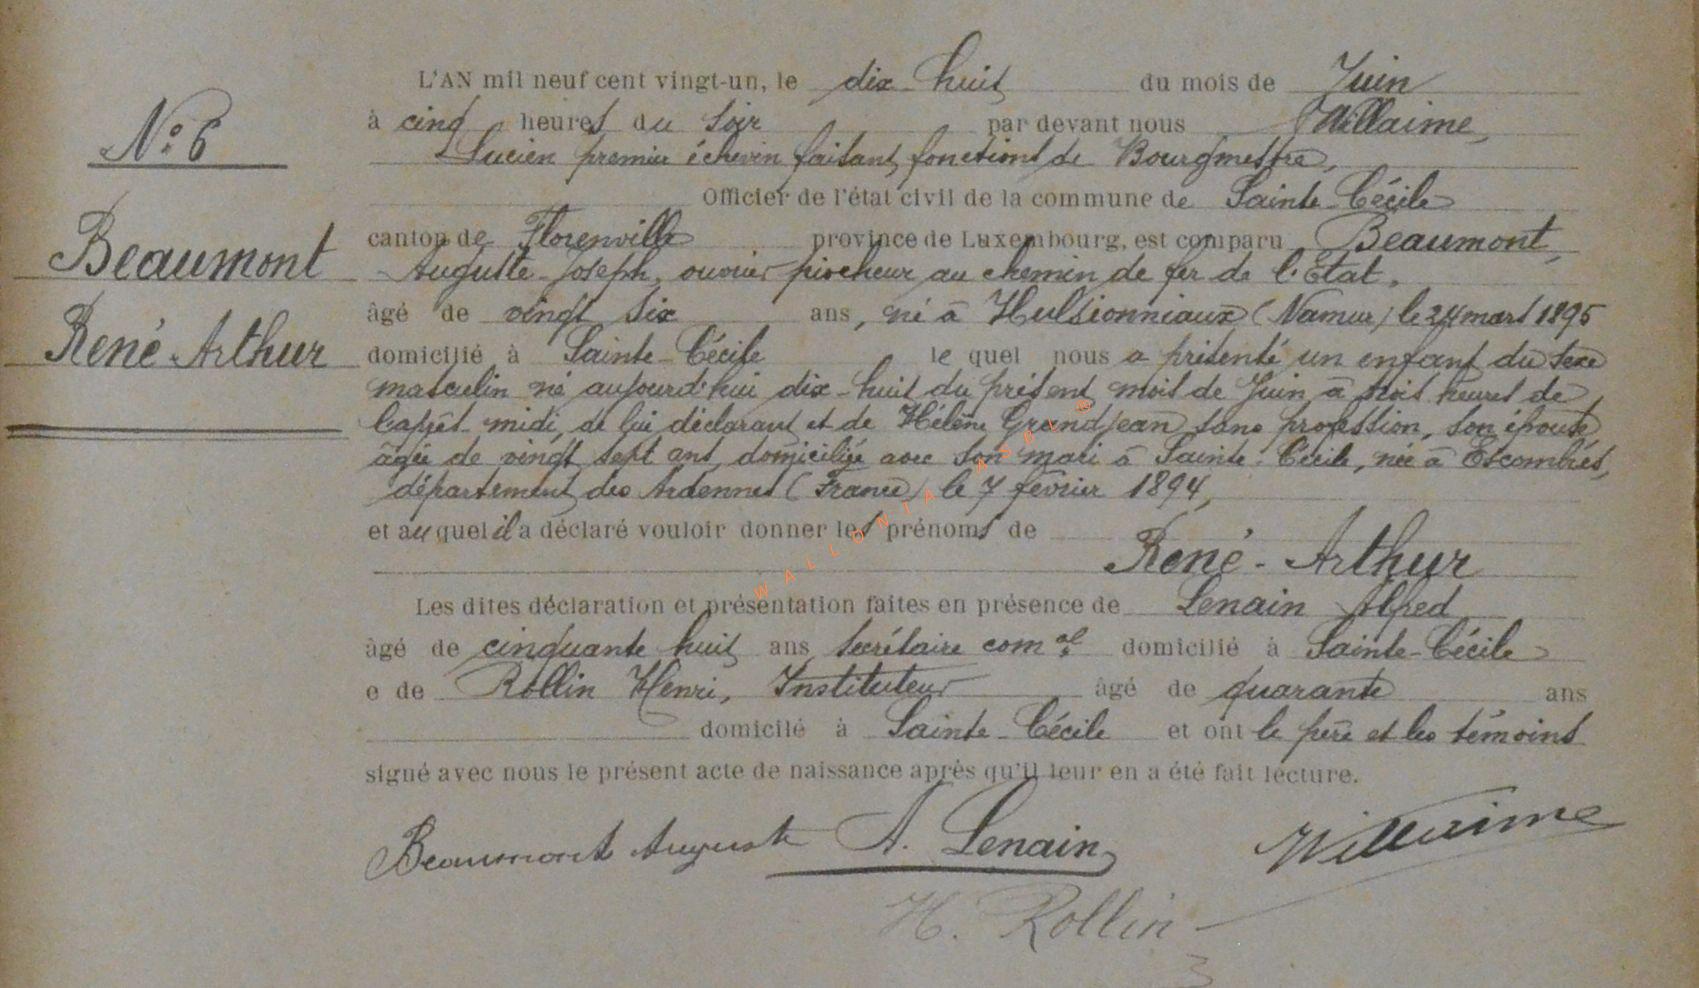 N° 6
Beaumont
René Arthur
L'AN mil neuf cent vingt-un, le dix-huit du mois de Juin
à cinq heures du soir par devant nous Willaime,
Lucien premier échevin faisant fonctions de Bourgmestre,
Officier de l'état civil de la commune de Sainte-Cécile
canton de Florenville province de Luxembourg, est comparu Beaumont,
Auguste-Joseph, ouvrier piocheur au chemin de fer de l'Etat,
âgé de vingt six ans, né à Hulsionniaux (Namur) le 24 mars 1895
domicilié à Sainte-Cécile le quel nous a présenté un enfant du sexe
masculin né aujourd'hui dix-huit du présent mois de Juin à trois heures de
l'après-midi, de lui déclarant et de Hélène Grandjean sans profession, son épouse,
âgée de vingt sept ans, domiciliée avec son mari à Sainte-Cécile, née à Escombres,
département des Ardennes (France) le 7 février 1894,
et auquel il a déclaré vouloir donner les prénoms de
René-Arthur
Les dites déclaration et présentation faites en présence de Lenain Alfred
âgé de cinquante huit ans secrétaire com.al domicilié à Sainte-Cécile
e de Rollin Henri, Instituteur âgé de quarante ans
domicilé à Sainte-Cécile et ont le père et les témoins
signé avec nous le présent acte de naissance après qu'il leur en a été fait lecture.
Beaumont Auguste A. Lenain Willaime
H. Rollin
WALLONIA ASBL